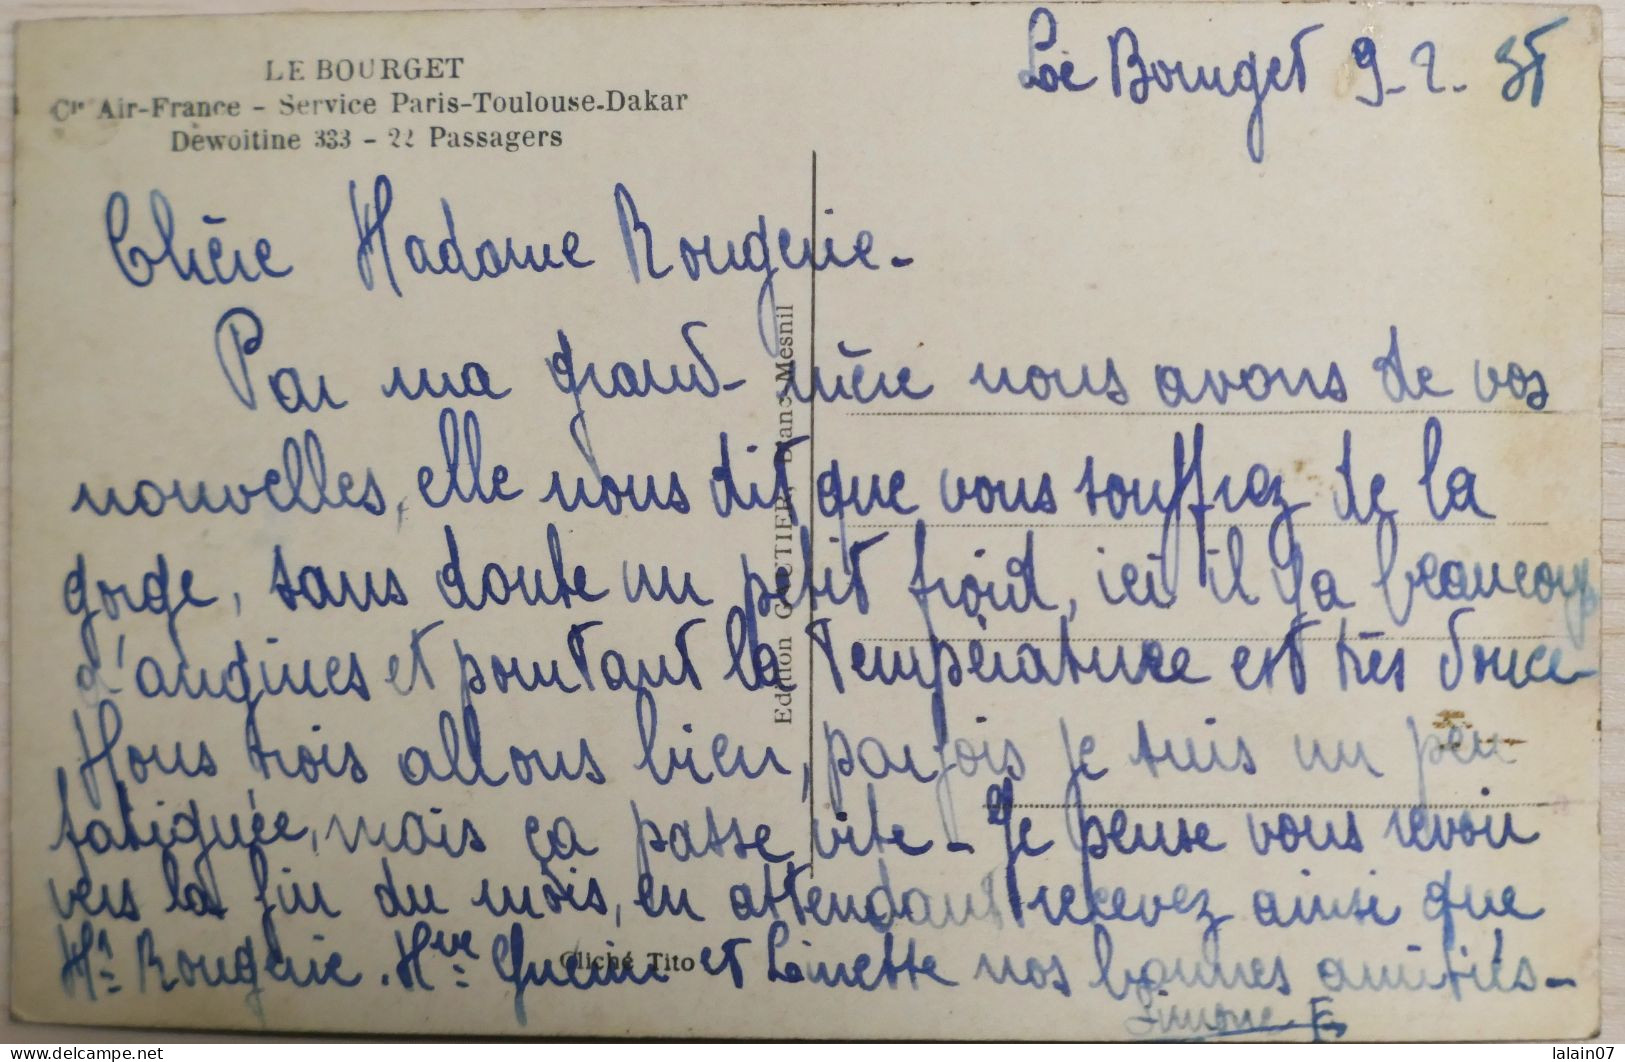 LE BOURGET
Cie Air-France - Service Paris-Toulouse-Dakar
Dewoitine 333 - 22 Passagers
Le Bourget 9-2-35
Chère Madame Rougerie.
Par ma grand-mère nous avons de vos
nouvelles, elle nous dit que vous souffrez de la
gorge, sans doute un petit froid, ici il y a beaucoup
d'angines et pourtant la température est très douce-
Nous trois allons bien, parfois je suis un peu
fatiguée, mais ça passe vite- Je pense vous revoir
vers la fin du mois, en attendant recevez ainsi que
Mr Rougerie. Mme et Linette nos bonnes amitiés-
Simone F.
Edition GOUTIER, Blanc-Mesnil
Cliché Tito
delcampe.net
lalain07